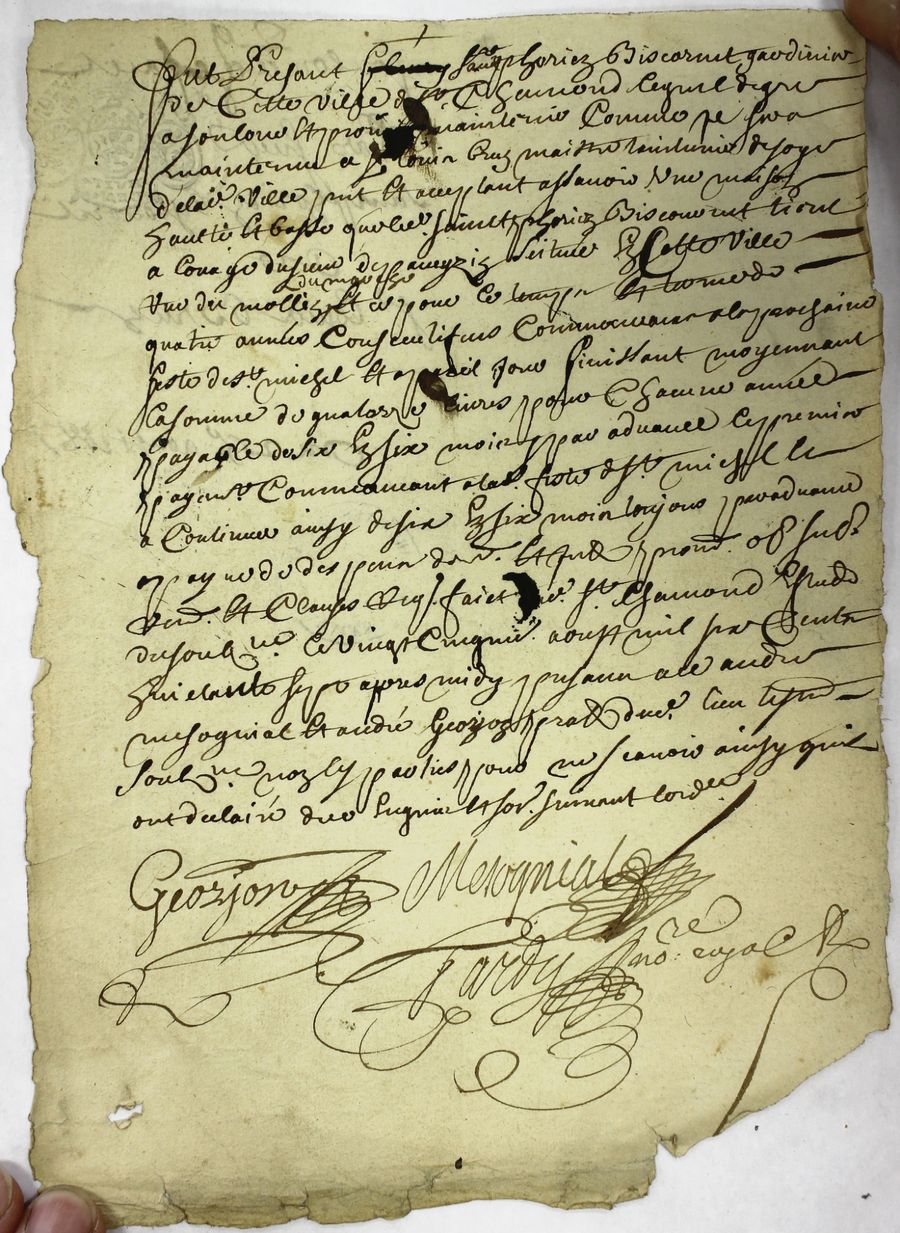 Fut Présant Simphoriez Biscornet gardinier
de Cette ville de St Chamond lequel de gré
a soubloué Et promis maintenir Comme je sera
maintenu a Sr louis maistre tainturier de soye
délad. Ville pnt Et acceptant assavoir Une maison
haulte Et basse queled. saint phoriez Biscornet tient
a louage du sieur de size En Cette Ville
Rue du mollin Et ce pour le temps Et terme de
quatre années Consecutifves Commenceans a la prochaine
feste de st. michel Et a pareil Jour finissant moyennant
la somme de quatorze livres pour Chacune année
payable de six En six mois par advance le premier
payemt. Commenceant a lad. feste de st. michel Et
a Continuer ainsy de six En six mois tousjours par advance
a payne de despens prom. ob. sub.
Ren. Et Clauses Req. faict aud. st. Chamond Estude
du soubne. le Vingt Cinquie. aoust mil six Cents
huictante sept apres midy presann ace andré
mesognial Et andré Georjon prat. dud. lieu
soubne. non les parties pour ne scavoir ainsy quil
ont declairé de ce Enquis Et so. suivant lordce
Georjon Mesognial
Tardy nore. royal R